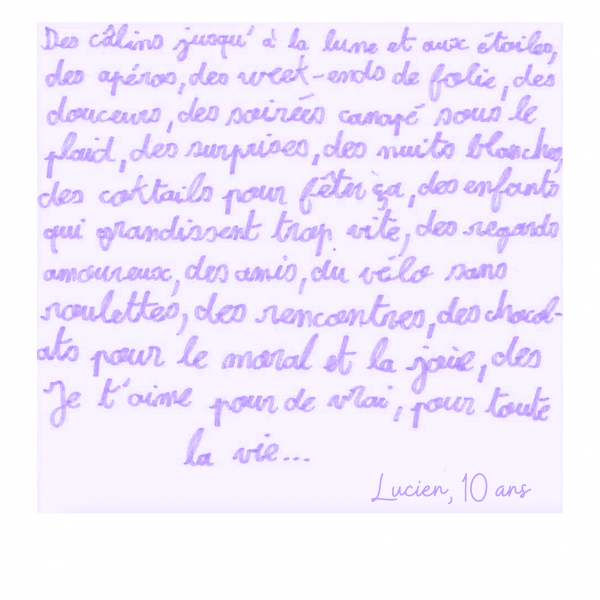 Des câlins jusqu' à la lune et aux étoiles,
des apéros, des week-ends de folie, des
douceurs, des soirées canapé sous le
plaid, des surprises, des nuits blanches,
des coktails pour fêter ça, des enfants
qui grandissent trop vite, des regards
amoureux, des amis, du vélo sans
roulettes, des rencontres, des chocol-
ats pour le moral et la joie, des
Je t'aime pour de vrai, pour toute
la vie...
Lucien, 10 ans